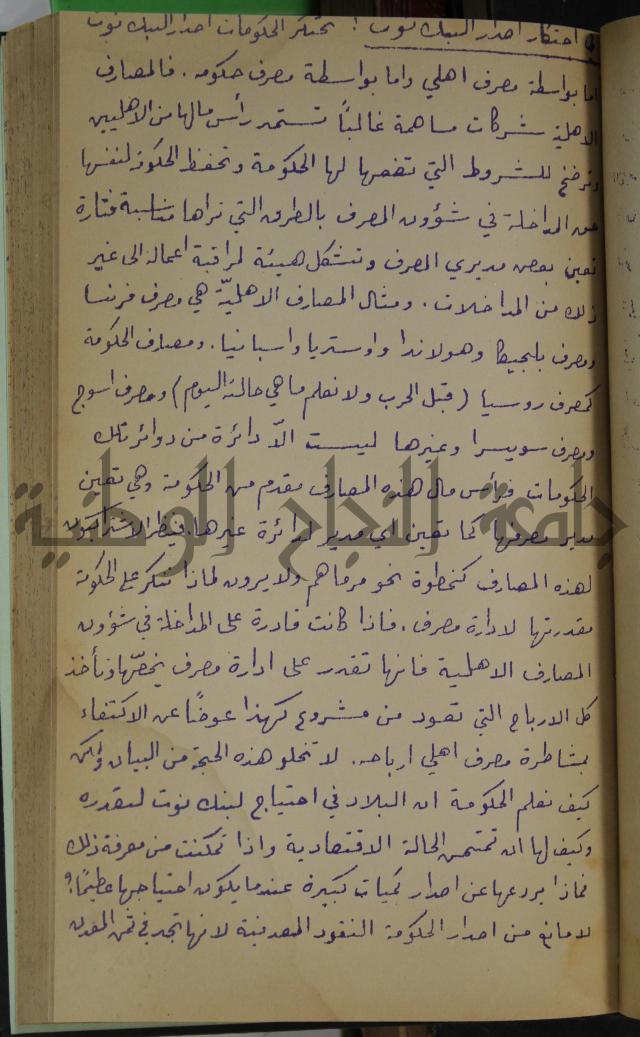 في احتكار اصدار البنك نوت : تحتكر الحكومات اصدار البنك نوت
اما بواسطة مصرف اهلي واما بواسطة مصرف حكومه . فالمصارف
الاهلية شركات مساهمة غالباً تستمد رأس مالها من الاهليين
وترضخ للشروط التي تضعها لها الحكومة وتحفظ الحكومة لنفسها
حق المداخلة في شؤون المصرف بالطرق التي تراها مناسبة فتارة
تعين بعض مديري المصرف وتشكل هيئة لمراقبة اعماله الى غير
ذلك من المداخلات . ومثال المصارف الاهليّة هي مصرف فرنسا
ومصرف بلجيكا وهولاندا واوستريا واسبانيا . ومصارف الحكومة
كمصرف روسيا ( قبل الحرب ولا نعلم ما هي حالته اليوم ) ومصرف اسوج
ومصرف سويسرا وغيرها ليست الّا دائرة من دوائر تلك
الحكومات فرأس مال هذه المصارف مقدم من الحكومة وهي تعين
مدير مصرفها كما تعين اي مدير لدائرة غيرها . فينظر الاشتراكيون
لهذه المصارف كخطوة نحو مرماهم ولا يرون لماذا تنكر على الحكومة
مقدرتها لادارة مصرف . فاذا كانت قادرة على المداخلة في شؤون
المصارف الاهلية فانها تقدر على ادارة مصرف يخصّها وتأخذ
كل الارباح التي تعود من مشروع كهذا عوضاً عن الاكتفاء
بمشاطرة مصرف اهلي ارباحه . لا تخلو هذه الحجة من البيان ولكن
كيف تعلم الحكومة ان البلاد في احتياج لبنك نوت لتصدره
وكيف لها ان الحالة الاقتصادية واذا تمكنت من معرفة ذلك
فماذا يردعها عن اصدار كميات كبيرة عندما يكون احتياجها عظيماً ؟
لا مانع من اصدار الحكومة النقود المعدنية لانها تجد في ثمن المعدن
جامعة النجاح الوطنية